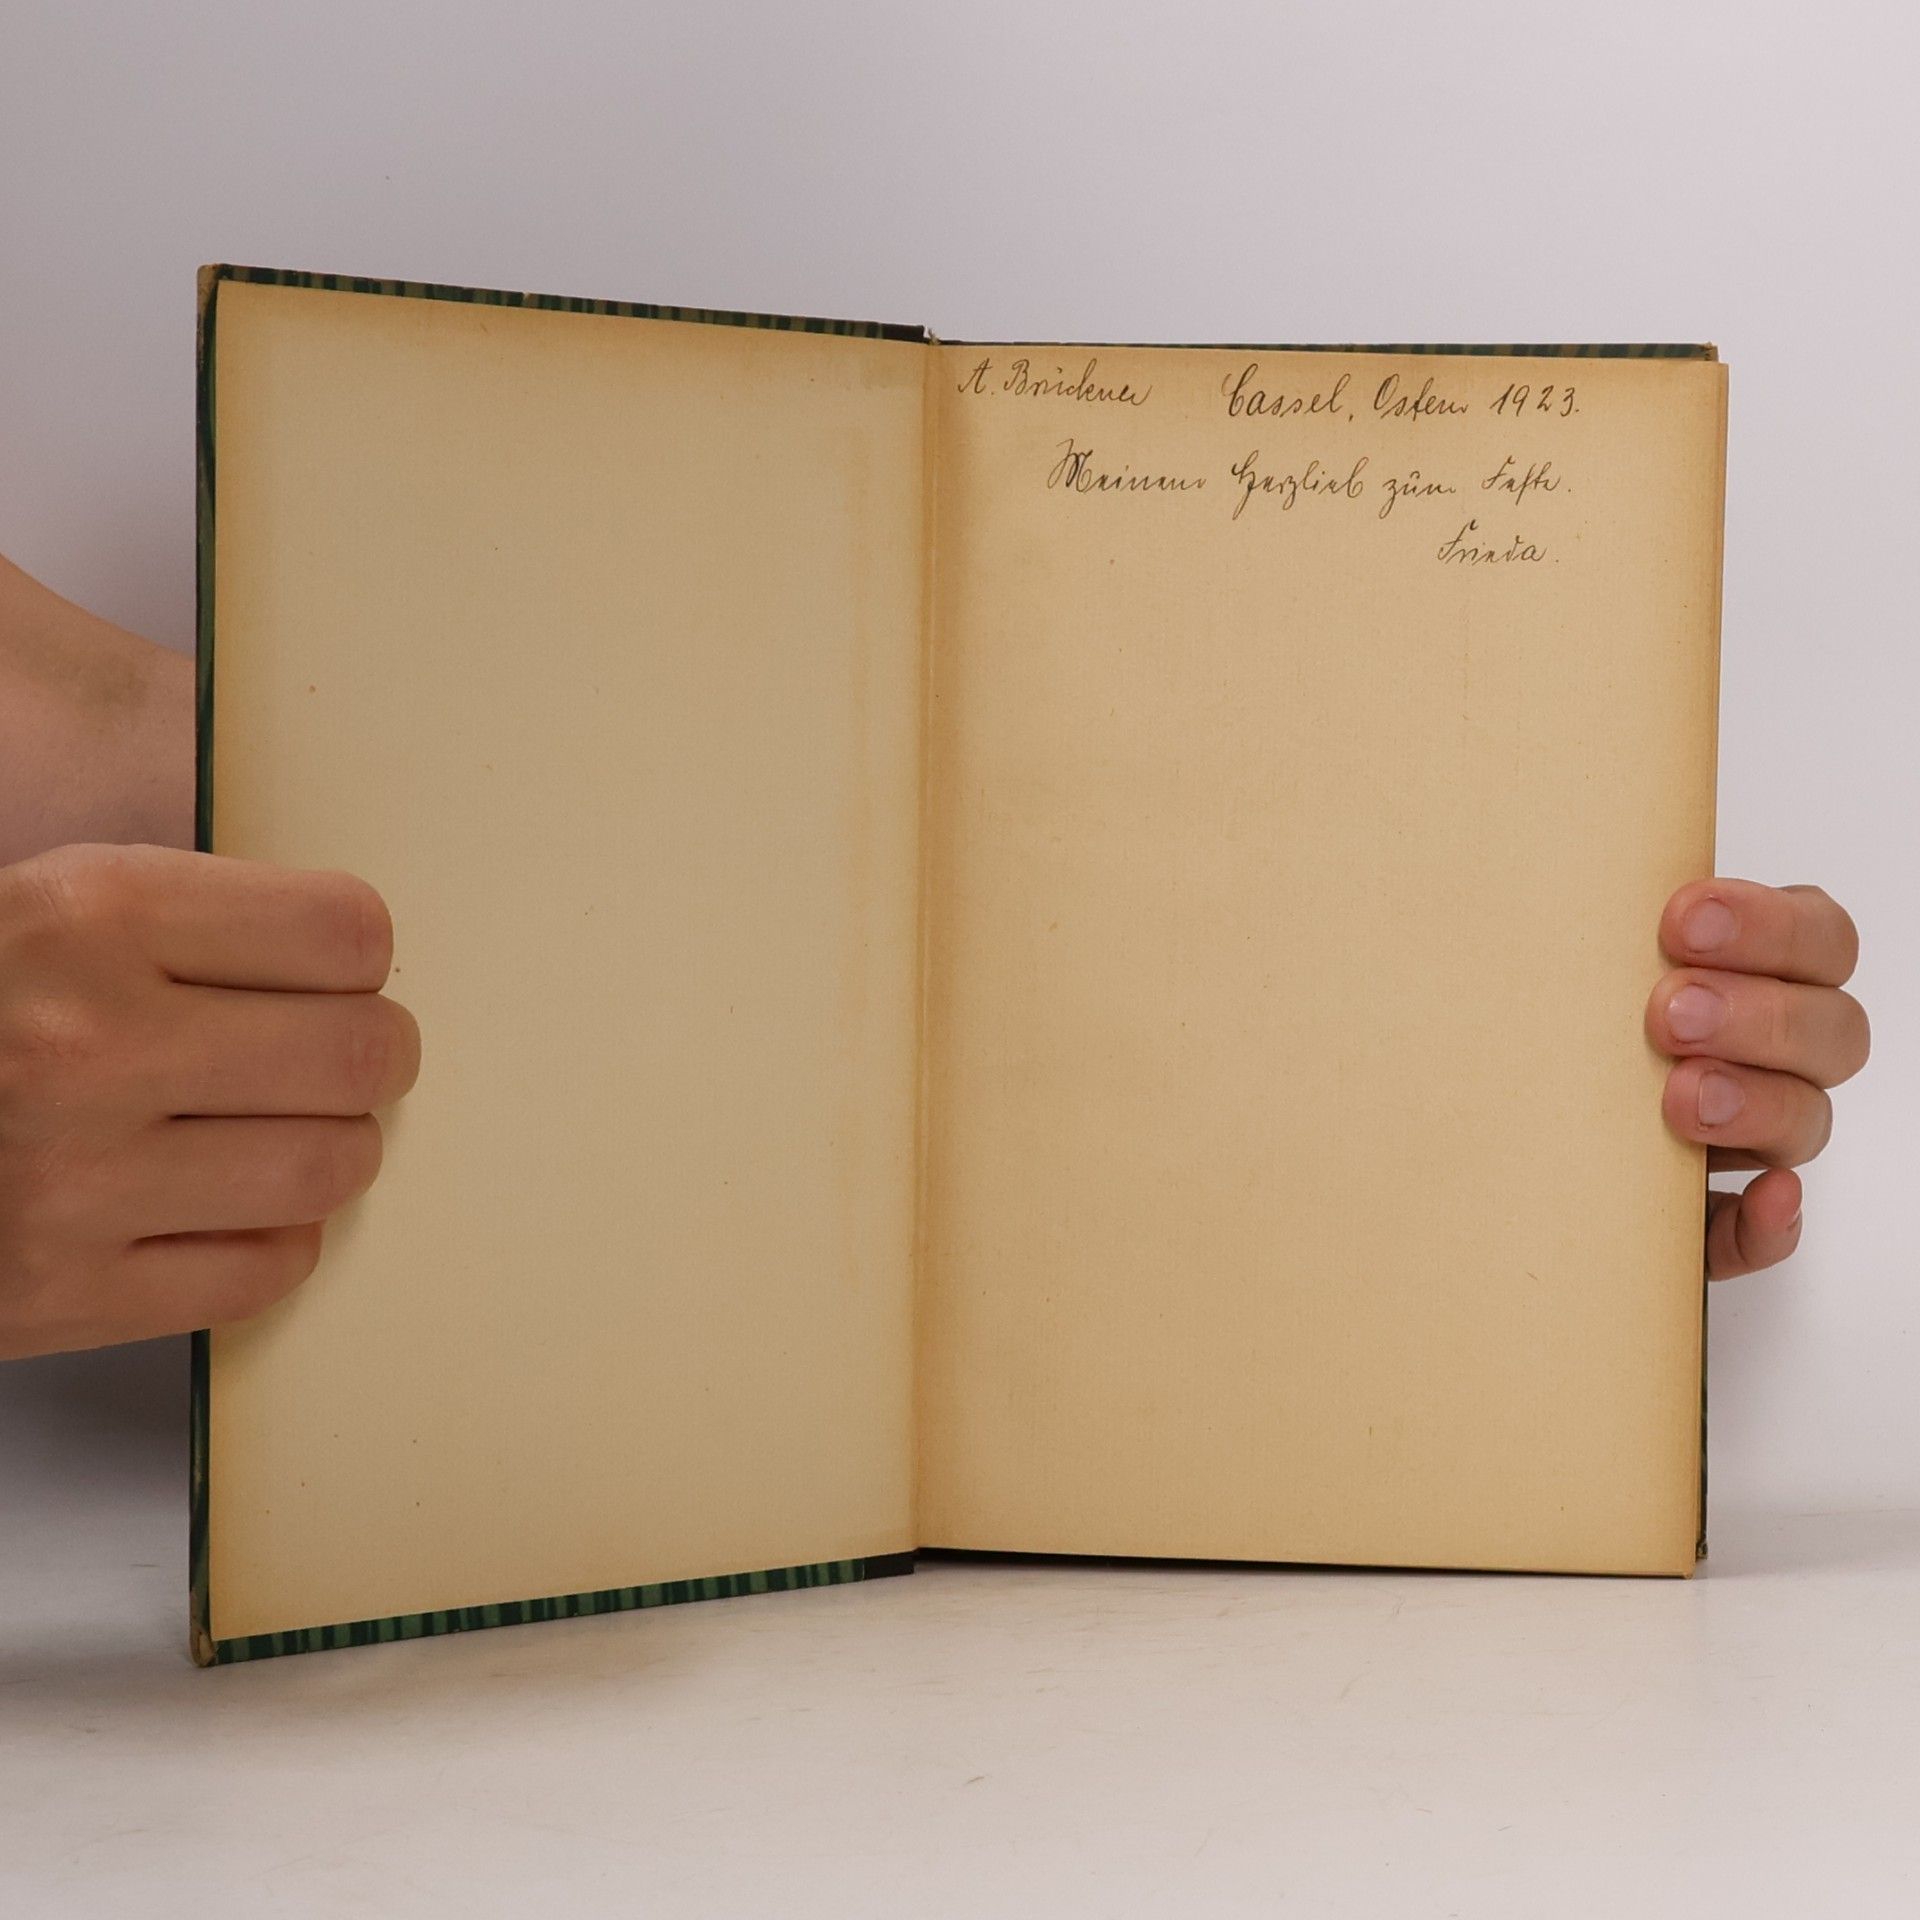 A. Brückner Cassel, Ostern 1923.
Meinem Herzlieb zum Feste.
Frieda.